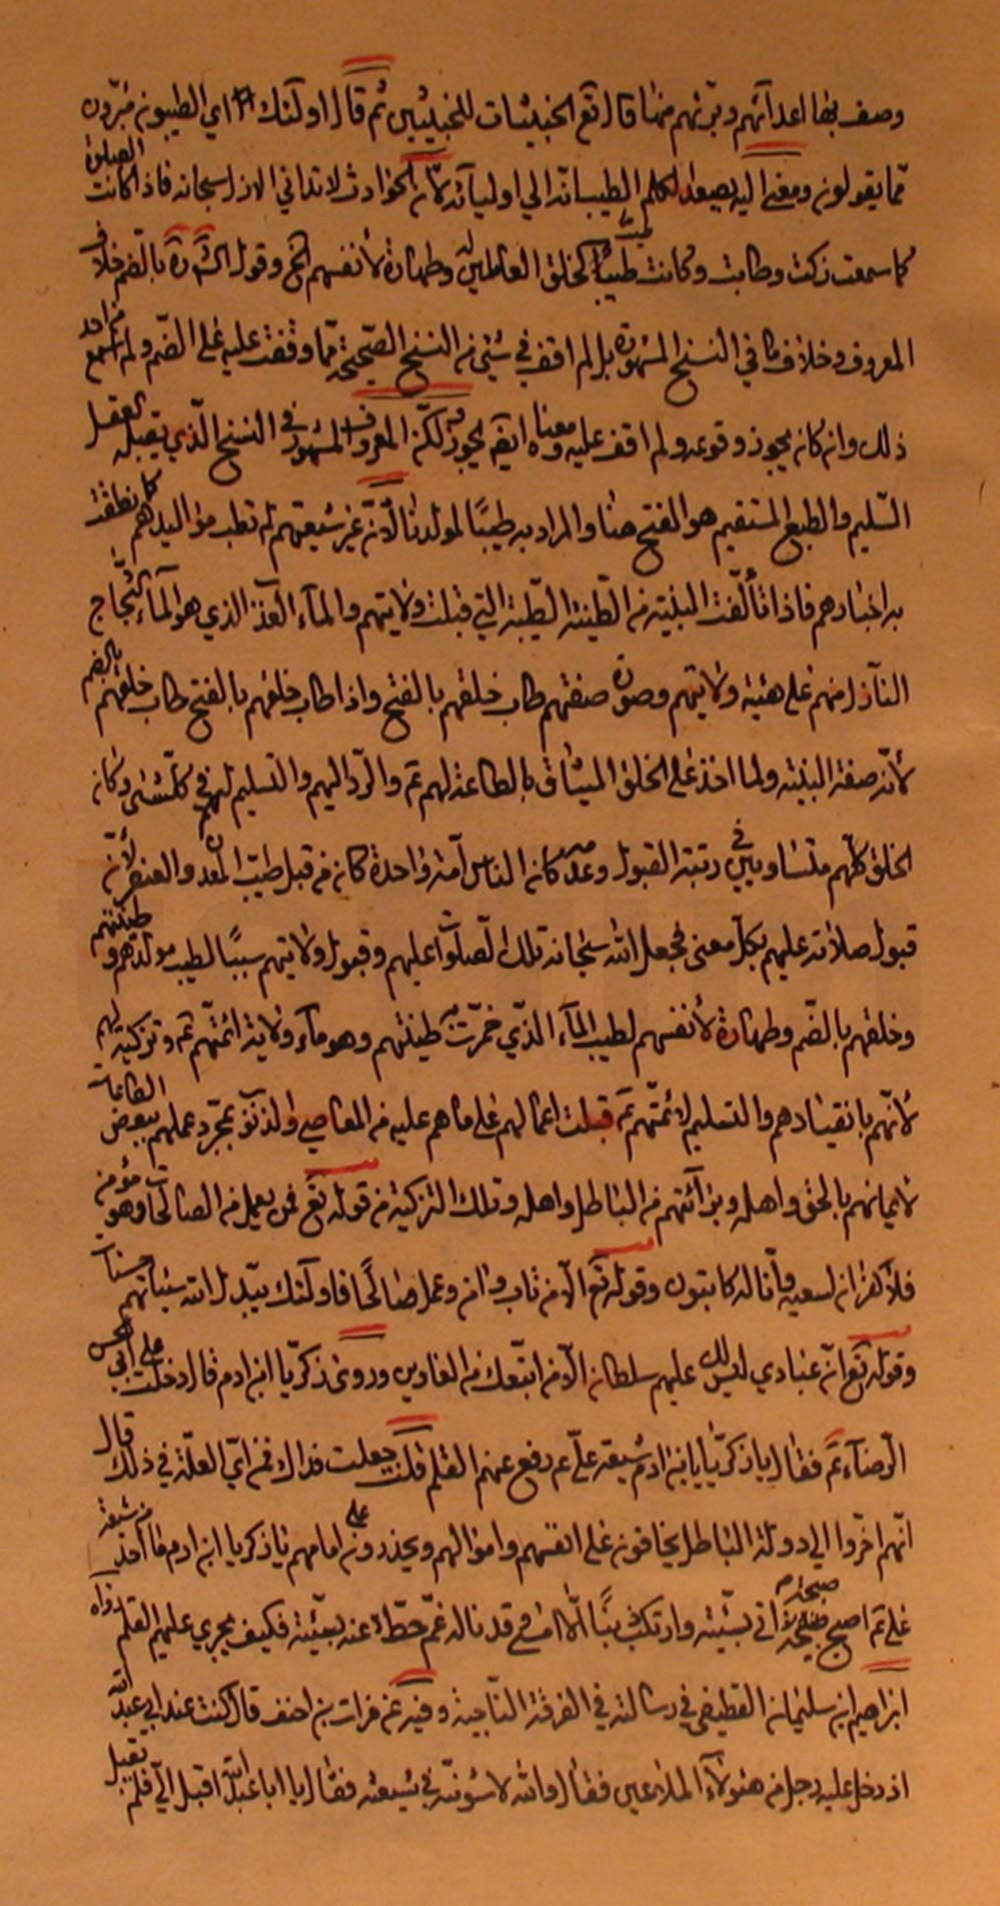 وصف بها اعدآئهم وتبرئهم منها قال تع الخبيثات للخبيثين ثم قال اولئك اي الطيبون مبرّون
ممّا يقولون ومعنى اليه يصعد الكلم الطيب انه الي اوليآئه لأنّ الحوادث لا تداني الازل سبحانه فاذا كانت الصلوة
كما سمعت زكت وطابت وكانت طيبًا لخلق العاملين له وطهارة لأنفسهم الخ وقول الشارح بالضم خلاف
المعروف وخلاف ما في النسخ المشهورة بل لم اقف في شيء من النسخ الصّحيحة ممّا وقفت عليه على الضم ولم اسمع من احد
ذلك وان كان يجوز وقوعه ولم اقف عليه ومعناه ايضًا يجوز لكنّ المعروف المشهور في النسخ الّذي يقبله العقل
السّليم والطبع المستقيم هو الفتح هنا والمراد به طيبًا لمولدنا لأنّ غير شيعتهم لم تطب مواليدهم كما نطقت
به اخبارهم فاذا تألّفت البنية من الطّينة الطّيبة التي قبلت ولايتهم والمآء العذب الذي هو المآء الثجّاج
النازل منهم على هيئة ولايتهم وصورة صفتهم طاب خلقهم بالفتح واذا طاب خلقهم بالفتح طاب خلقهم بالضم
لأنّه صفة البنية ولما اخذ على الخلق الميثاق بالطاعة لهم ع والرّد اليهم والتسليم لهم في كلّ شئ وكان
الخلق كلّهم متساوين في رتبة القبول وعدمه كان الناس امّة واحدة كان من قبل طيب المعدن والعنصر لأنّ
قبول صلاته عليهم بكلّ معنى فجعل الله سبحانه تلك الصلوات عليهم وقبول ولايتهم سببًا لطيب مولدهم وطينتهم
وخلقهم بالضّم وطهارة لأنفسهم لطيب المآء الّذي خمّرت به طينتهم وهو مآء ولاية ائمّتهم ع وتزكية لهم
لأنّهم بانقيادهم والتسليم لأئمّتهم ع قبلت اعمالهم على ما هم عليه من المعاصي والذنوب بمجرّد عملهم ببعض الطاعات
لايمانهم بالحق واهله وبرآئتهم من الباطل واهله وتلك التزكية من قوله تع فمن يعمل من الصالحات وهو مؤمن
فلا كفران لسعيه وانّا له كاتبون وقوله تع الّا من تاب وامن وعمل صالحًا فاولئك يبدّل الله سيئاتهم حسنات
وقوله تع انّ عبادي ليس لك عليهم سلطان الّا من اتبعك من الغاوين وروى زكريّا ابن ادم قال دخلت على ابي الحسن
الرّضآء ع فقال يا زكريّا يا ابن ادم شيعة عليّ ع رفع عنهم القلم قلت جعلت فداك فمن ايّ العلّة في ذلك قال
انّهم اخّروا الي دولة الباطل يخافون على انفسهم واموالهم ويحذرون على امامهم يا زكريا ابن ادم ما احد من شيعة
علي ع اصبح صبيحة اتى بسيّئة وارتكب ذنبًا الّا امسى وقد ناله غمّ حطّ عنه سيّئته فكيف يجري عليهم القلم رواه
ابراهيم ابن سليمان القطيفي في رسالته في الفرقة الناجية وفيه عن فرات بن احنف قال كنت عند ابي عبد الله
اذ دخل عليه رجل من هؤلآء الملاعين فقال والله لاسوئنّه في شيعته فقال يا ابا عبد الله اقبل اليّ فلم يقبل